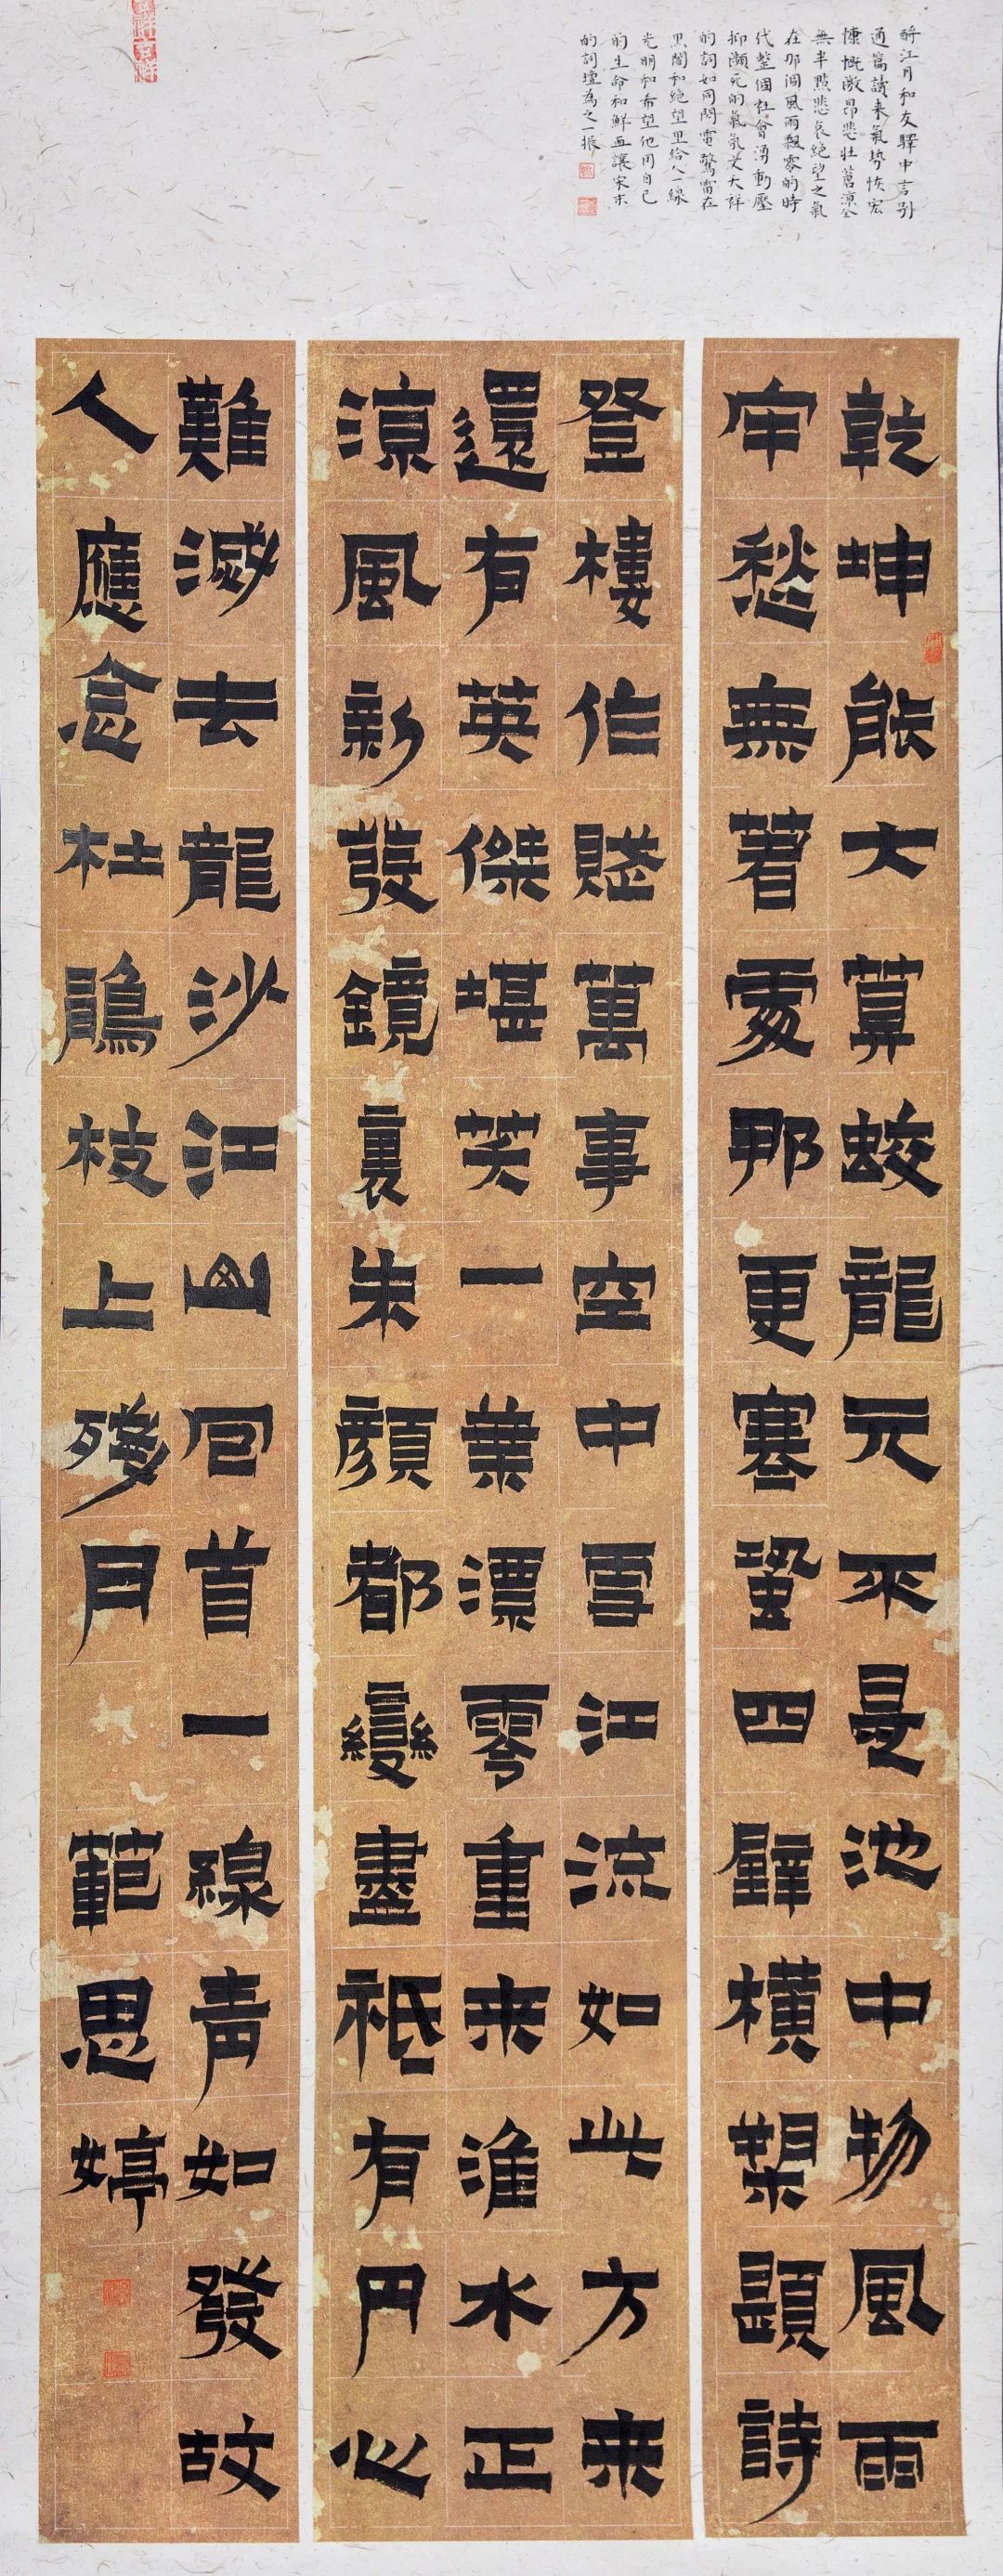 酹江月和友驛中言別
通篇讀來氣勢恢宏
慷慨激昂悲壯蒼涼全
無半點悲哀絕望之氣
在那個風雨飄零的時
代整個社會湧動壓
抑瀕死的氣氛文天祥
的詞如同閃電驚雷在
黑闇和絕望里給人一線
光明和希望他用自己
的生命和鮮血讓宋末
的詞壇為之一振
乾坤能大算蛟龍元不是池中物風雨
牢愁無著處那更寒蛩四壁橫槊題詩
登樓作賦萬事空中雪江流如此方来
還有英傑堪笑一葉漂零重来淮水正
涼風新發鏡裏朱顏都變盡祗有丹心
難滅去龍沙江山回首一線青如發故
人應念杜鵑枝上殘月 範思婷